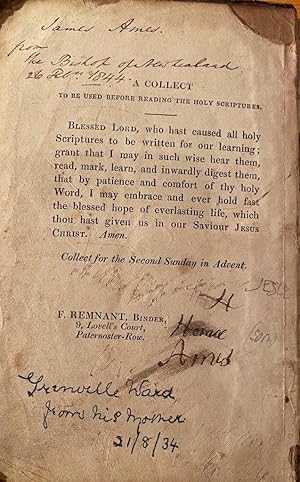 James Ames.
from
the Bishop of New Zealand
26 Feb. 1844.
A COLLECT
TO BE USED BEFORE READING THE HOLY SCRIPTURES.
BLESSED LORD, who hast caused all holy
Scriptures to be written for our learning;
grant that I may in such wise hear them,
read, mark, learn, and inwardly digest them,
that by patience and comfort of thy holy
Word, I may embrace and ever hold fast
the blessed hope of everlasting life, which
thou hast given us in our Saviour JESUS
CHRIST. Amen.
Collect for the Second Sunday in Advent.
H
F. REMNANT, BINDER,
9, Lovell's Court,
Paternoster-Row.
Horace
Ames
(son)
Grenville Ward,
from his Mother
21/8/34